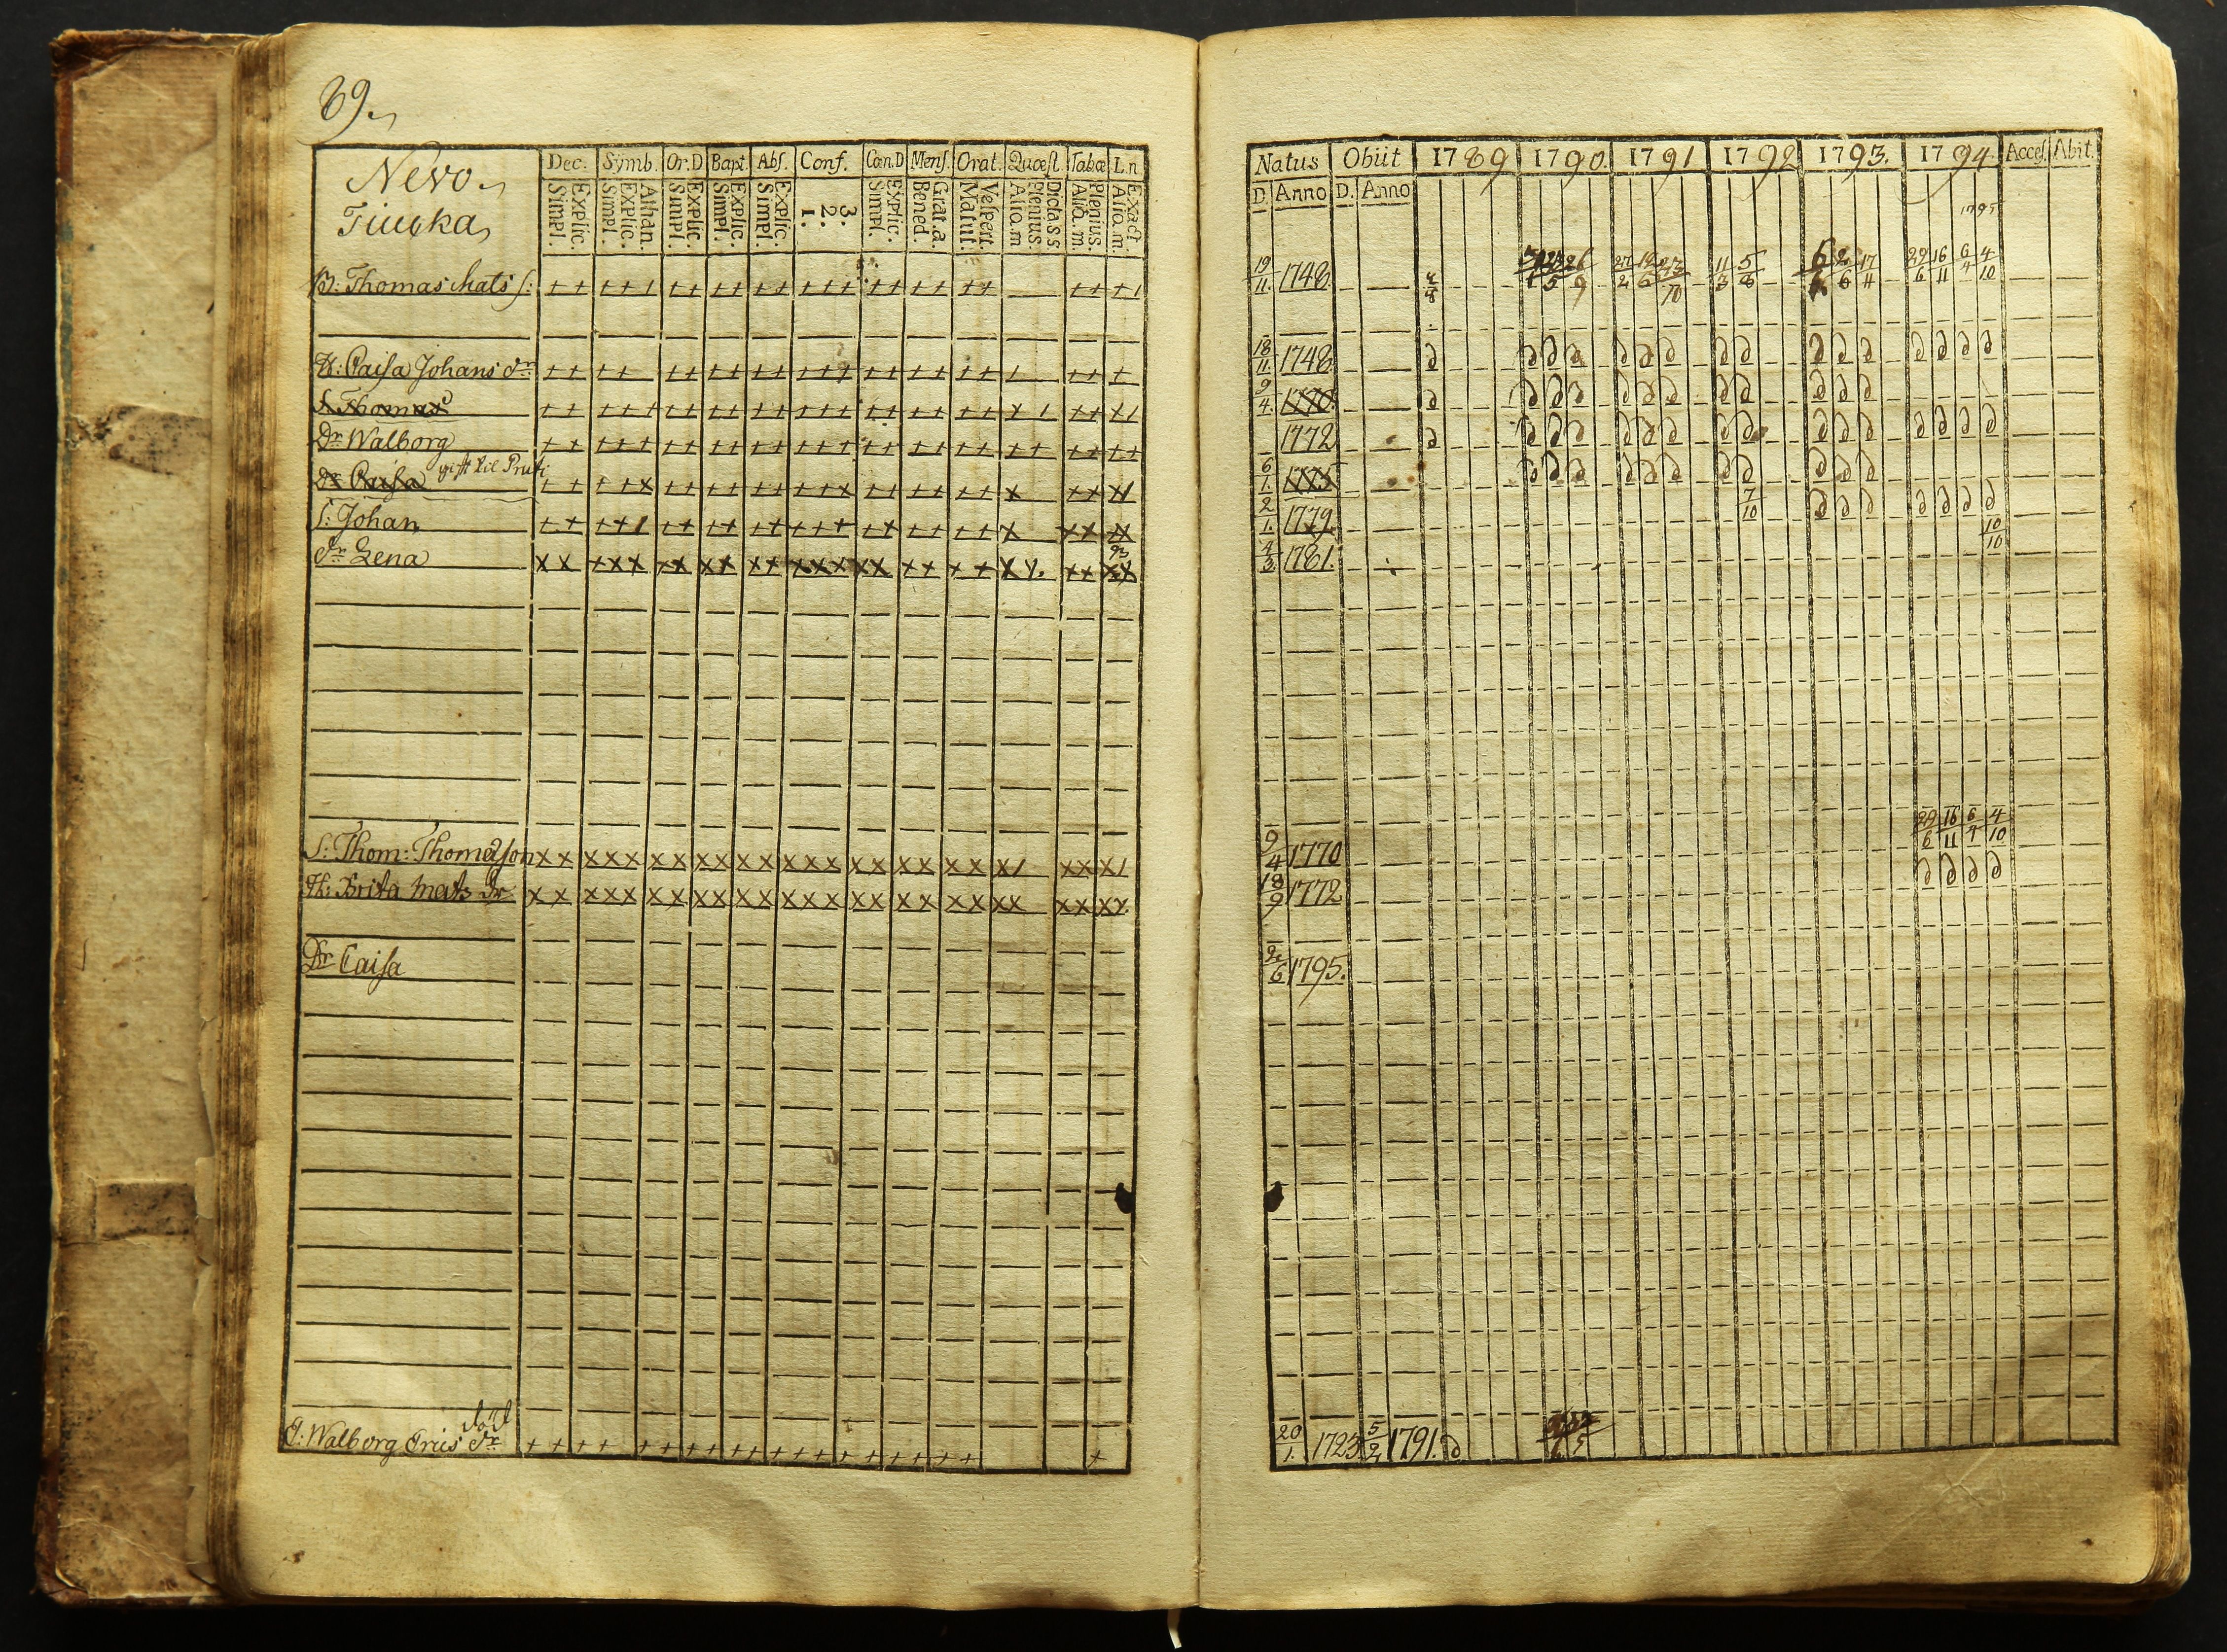 89.
Nevo.
Tiucka
Dec. Symb. Or.D Bapt Abs. Conf. Cœn.D Mens. Orat. Quæst. Tabæ L.n
Explic. Simpl. Athan. Explic. Simpl. Explic. Simpl. Explic. Simpl. Explic. Simpl. 3. 2. 1. Explic. Simpl. Grat.a. Bened. Vespert. Matut. Plenius. Alio.m Plenius. Alio.m. Exact. Alio.m.
B: Thomas Mats S:
H: Caisa Johans dr
S. Thomas
Dr Walborg
Dr Caisa gift til Pruti
S: Johan
dr Lena
S: Thom: Thomason
H: Brita Mats Dr
Dr Caisa
E: Walborg Eriis dr död
Natus Obiit 1789 1790. 1791 1792 1793. 1794. Acces. Abit.
D. Anno D. Anno
1795
19/11 1748. 27/2 11/3 5/8 17/11 29/6 16/11 6/4 4/10
18/11. 1748. d d d d d d d d d d d d d d d d
9/4. 1770. d d d d d d d d d d d d
1772 d d d d d d d d d d d d d d d d
6/1. 1775 d d d d d d d d d d d
2/1. 1779. 7/10 d d d d d d d
4/3 1781. 10/10
9/4 1770 29/6 16/11 6/4 4/10
18/9 1772 d d d d
2/6 1795.
20/1. 1723. 5/2 1791. d